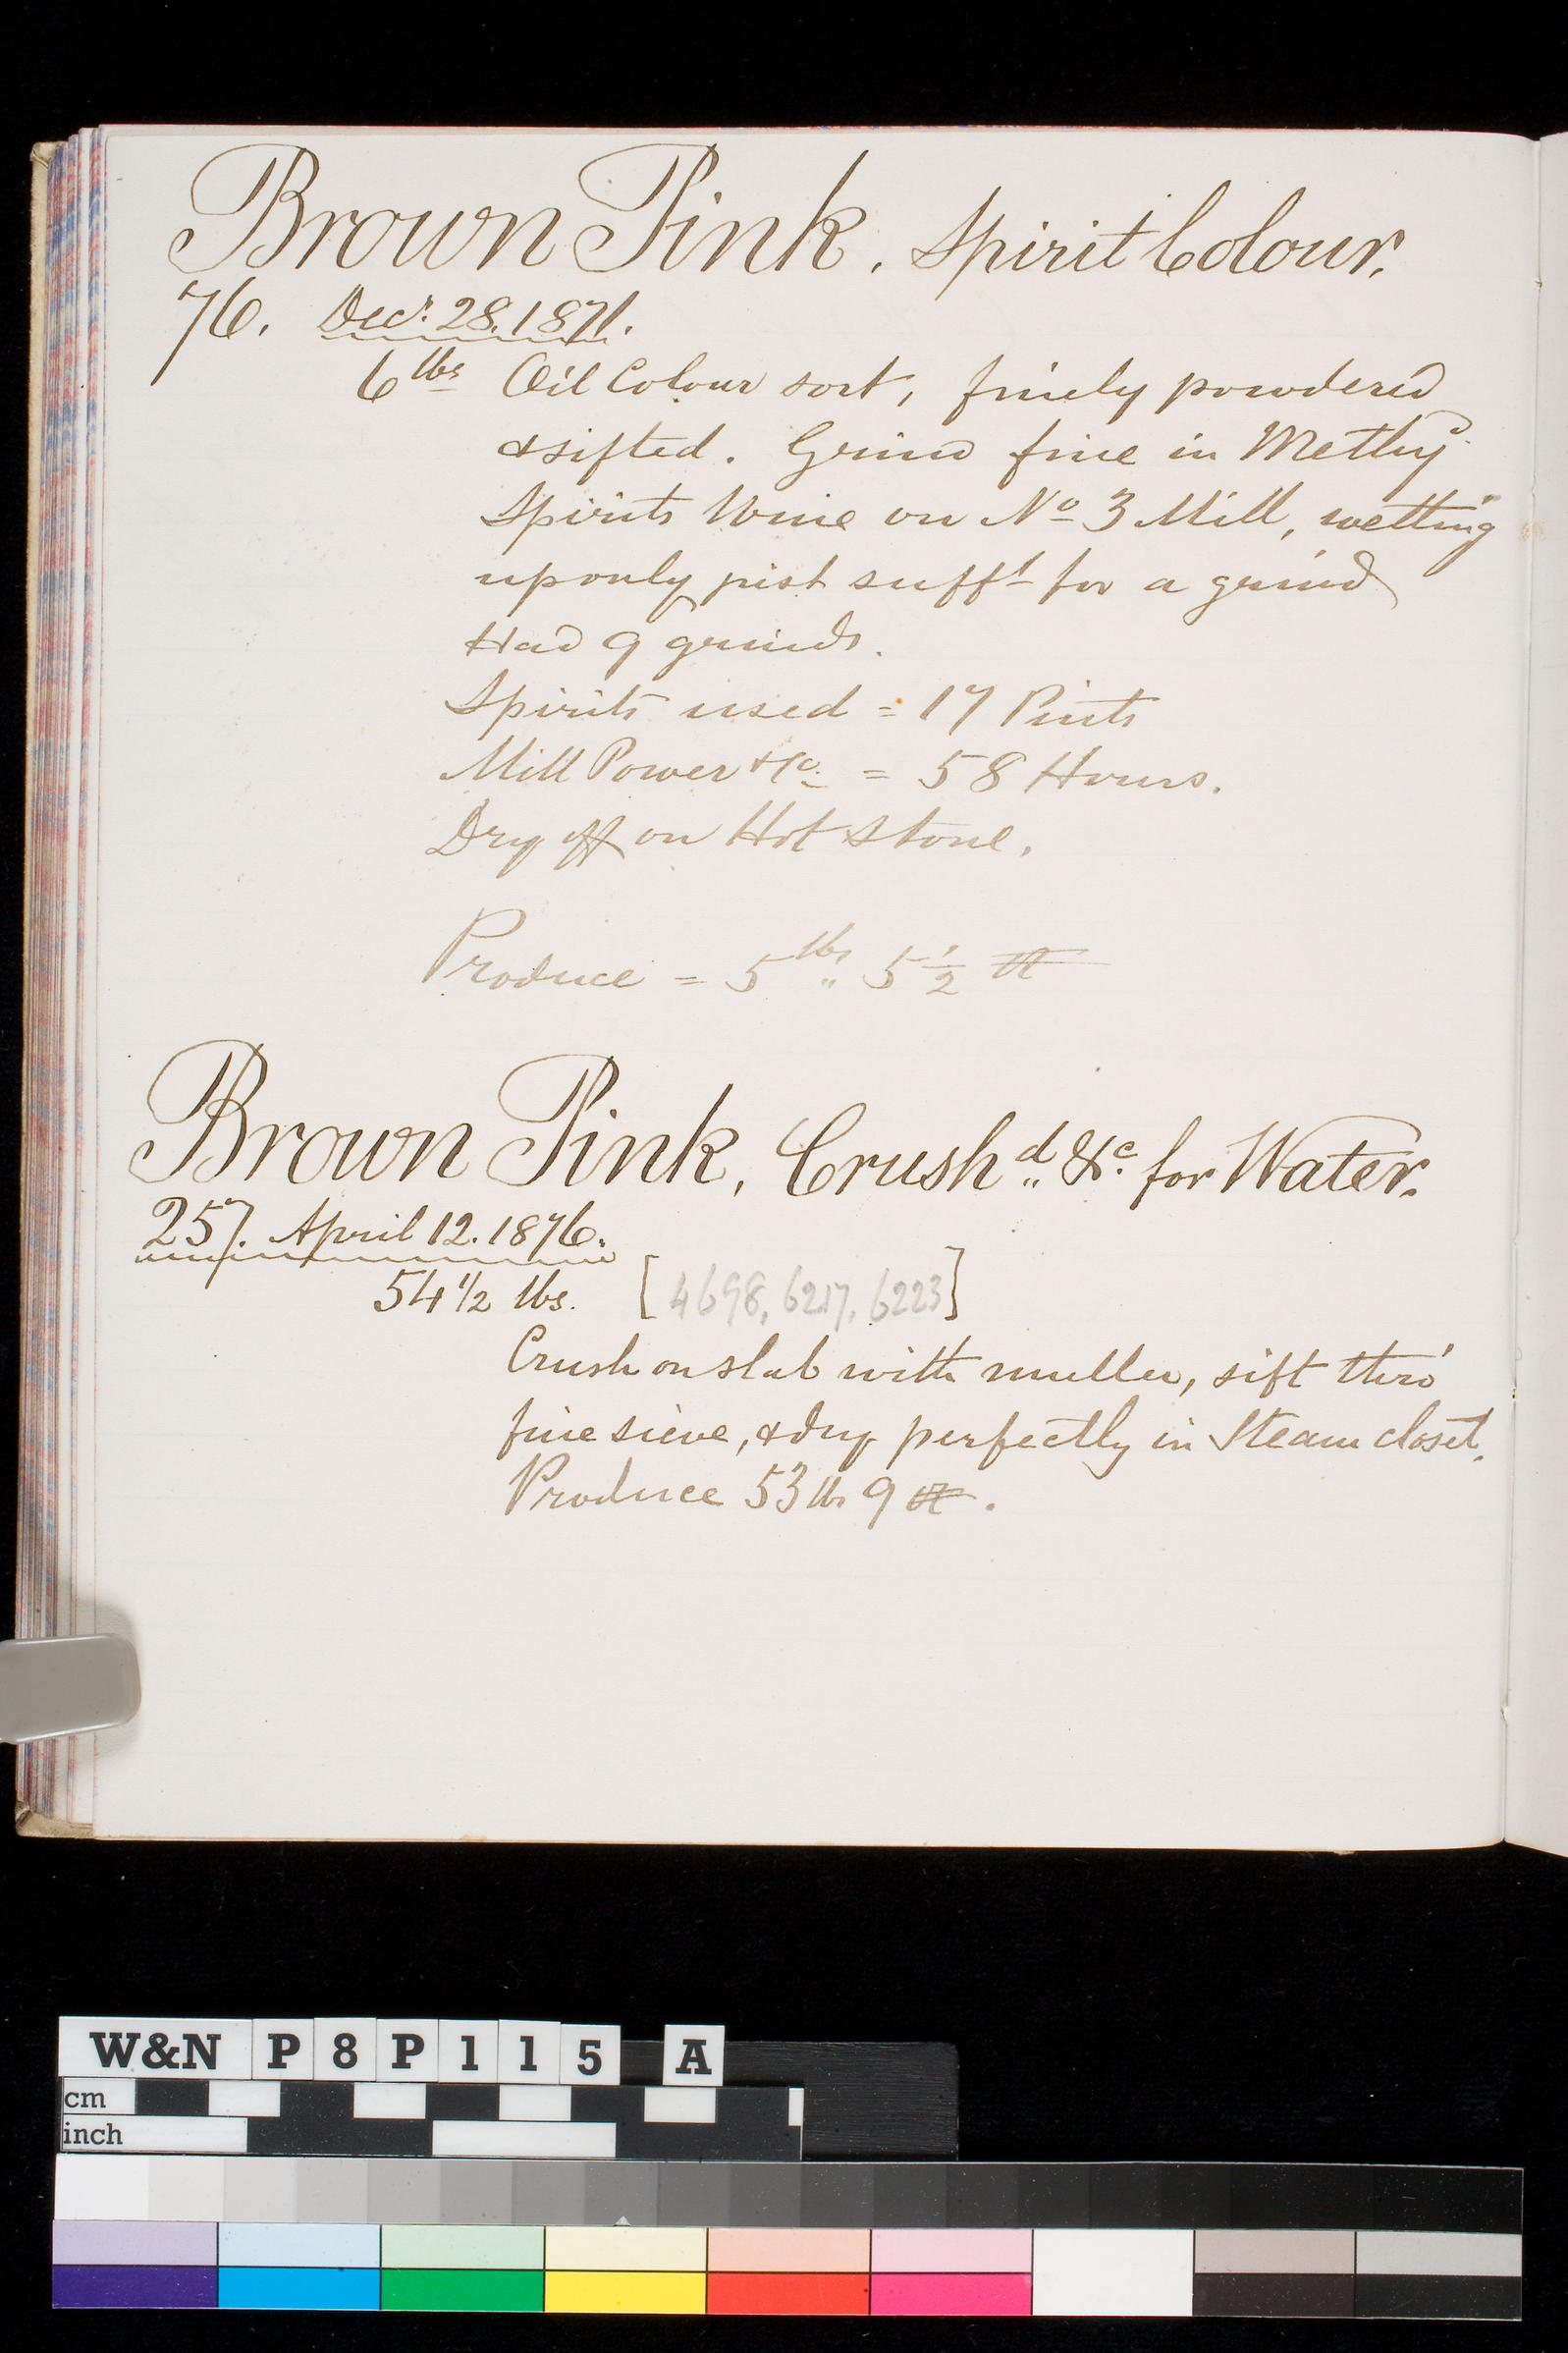 Brown Pink. Spirit Colour.
76. Decr. 28. 1871.
6 lbs Oil Colour sort, finely powdered
& sifted. Grind fine in Methyd.
Spirits Wine on No 3 Mill, wetting
up only just sufft for a grind
Had 9 grinds.
Spirits used = 17 Pints
Mill Power &c. = 58 Hours.
Dry off on Hot Stone.
Produce = 5 lbs 5 1/2
Brown Pink, Crushd. &c. for Water.
257. April 12. 1876.
54 1/2 lbs. [4698, 6217, 6223]
Crush on slab with muller, sift thro'
fine sieve, & dry perfectly in Steam closet.
Produce 53 lbs 9
W&N P8P115 A
cm
inch